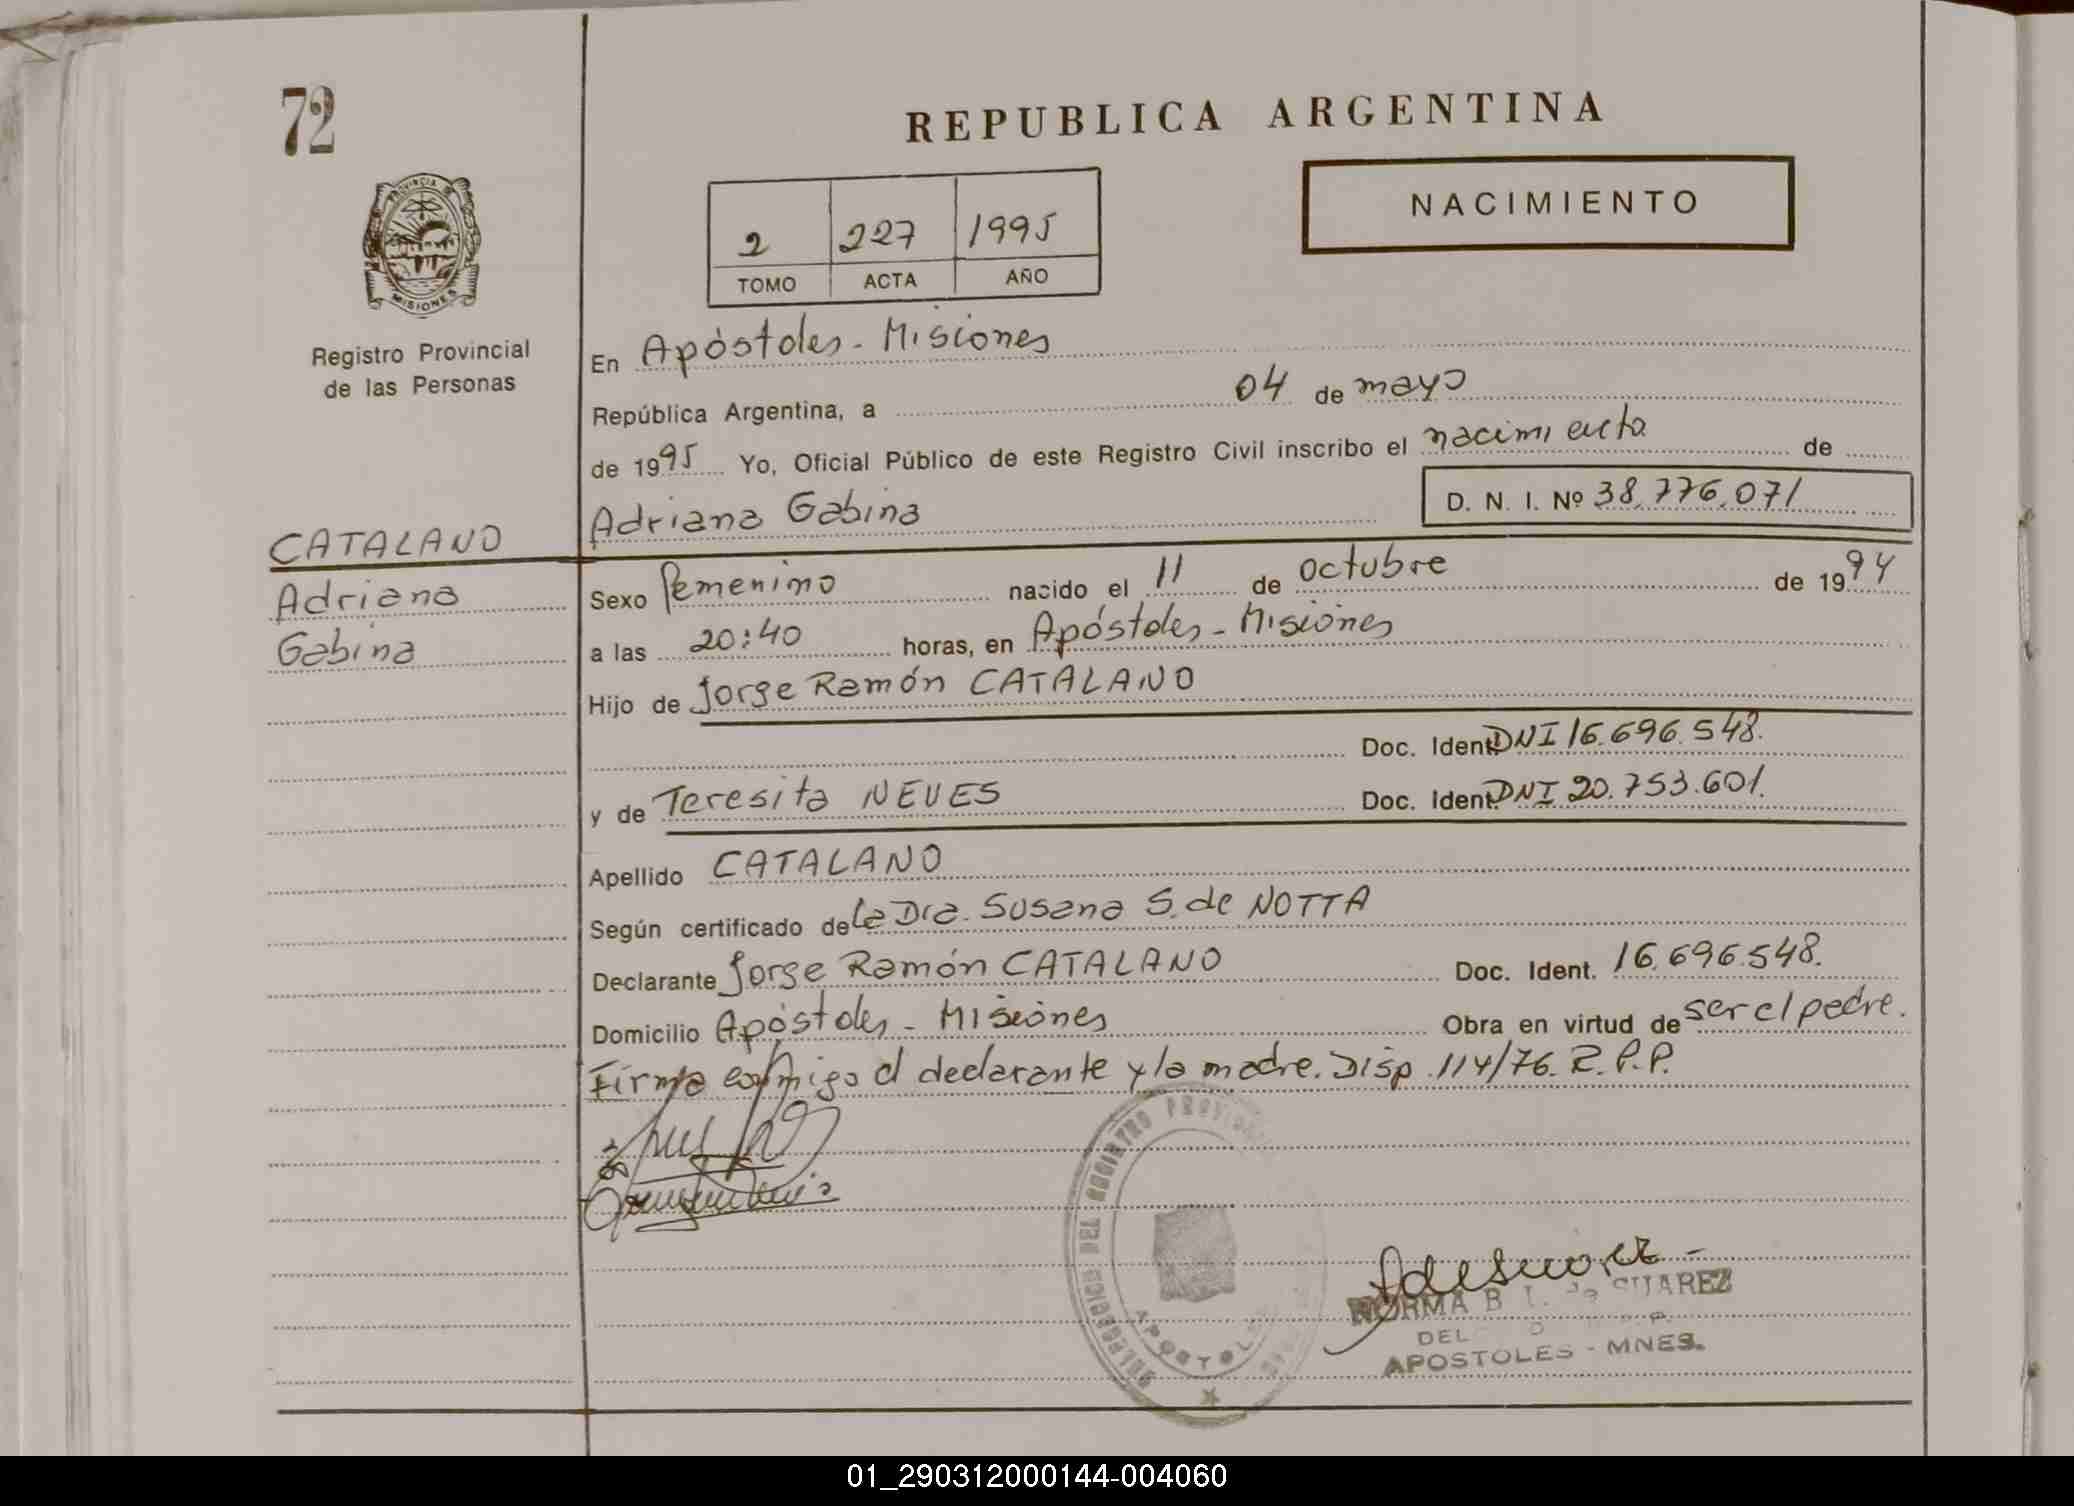 72
REPUBLICA ARGENTINA
NACIMIENTO
2 227 1995
TOMO ACTA AÑO
PROVINCIA DE MISIONES
Registro Provincial
de las Personas
En Apóstoles - Misiones
República Argentina, a 04 de mayo
de 1995 Yo, Oficial Público de este Registro Civil inscribo el nacimiento de
Adriana Gabina D. N. I. Nº 38.776.071
CATALANO
Adriana
Gabina
Sexo femenino nacido el 11 de octubre de 1994
a las 20:40 horas, en Apóstoles - Misiones
Hijo de Jorge Ramón CATALANO
Doc. Ident. DNI 16.696.548.
y de Teresita NEVES Doc. Ident. DNI 20.753.601.
Apellido CATALANO
Según certificado de la Dra. Susana S. de NOTTA
Declarante Jorge Ramón CATALANO Doc. Ident. 16.696.548.
Domicilio Apóstoles - Misiones Obra en virtud de ser el padre.
Firma conmigo el declarante y la madre. Disp. 114/76. R.P.P.
DELEGACION DEL REGISTRO PROVINCIAL
APOSTOLES
NORMA B. L. de SUAREZ
DEL
APOSTOLES - MNES.
01_290312000144-004060